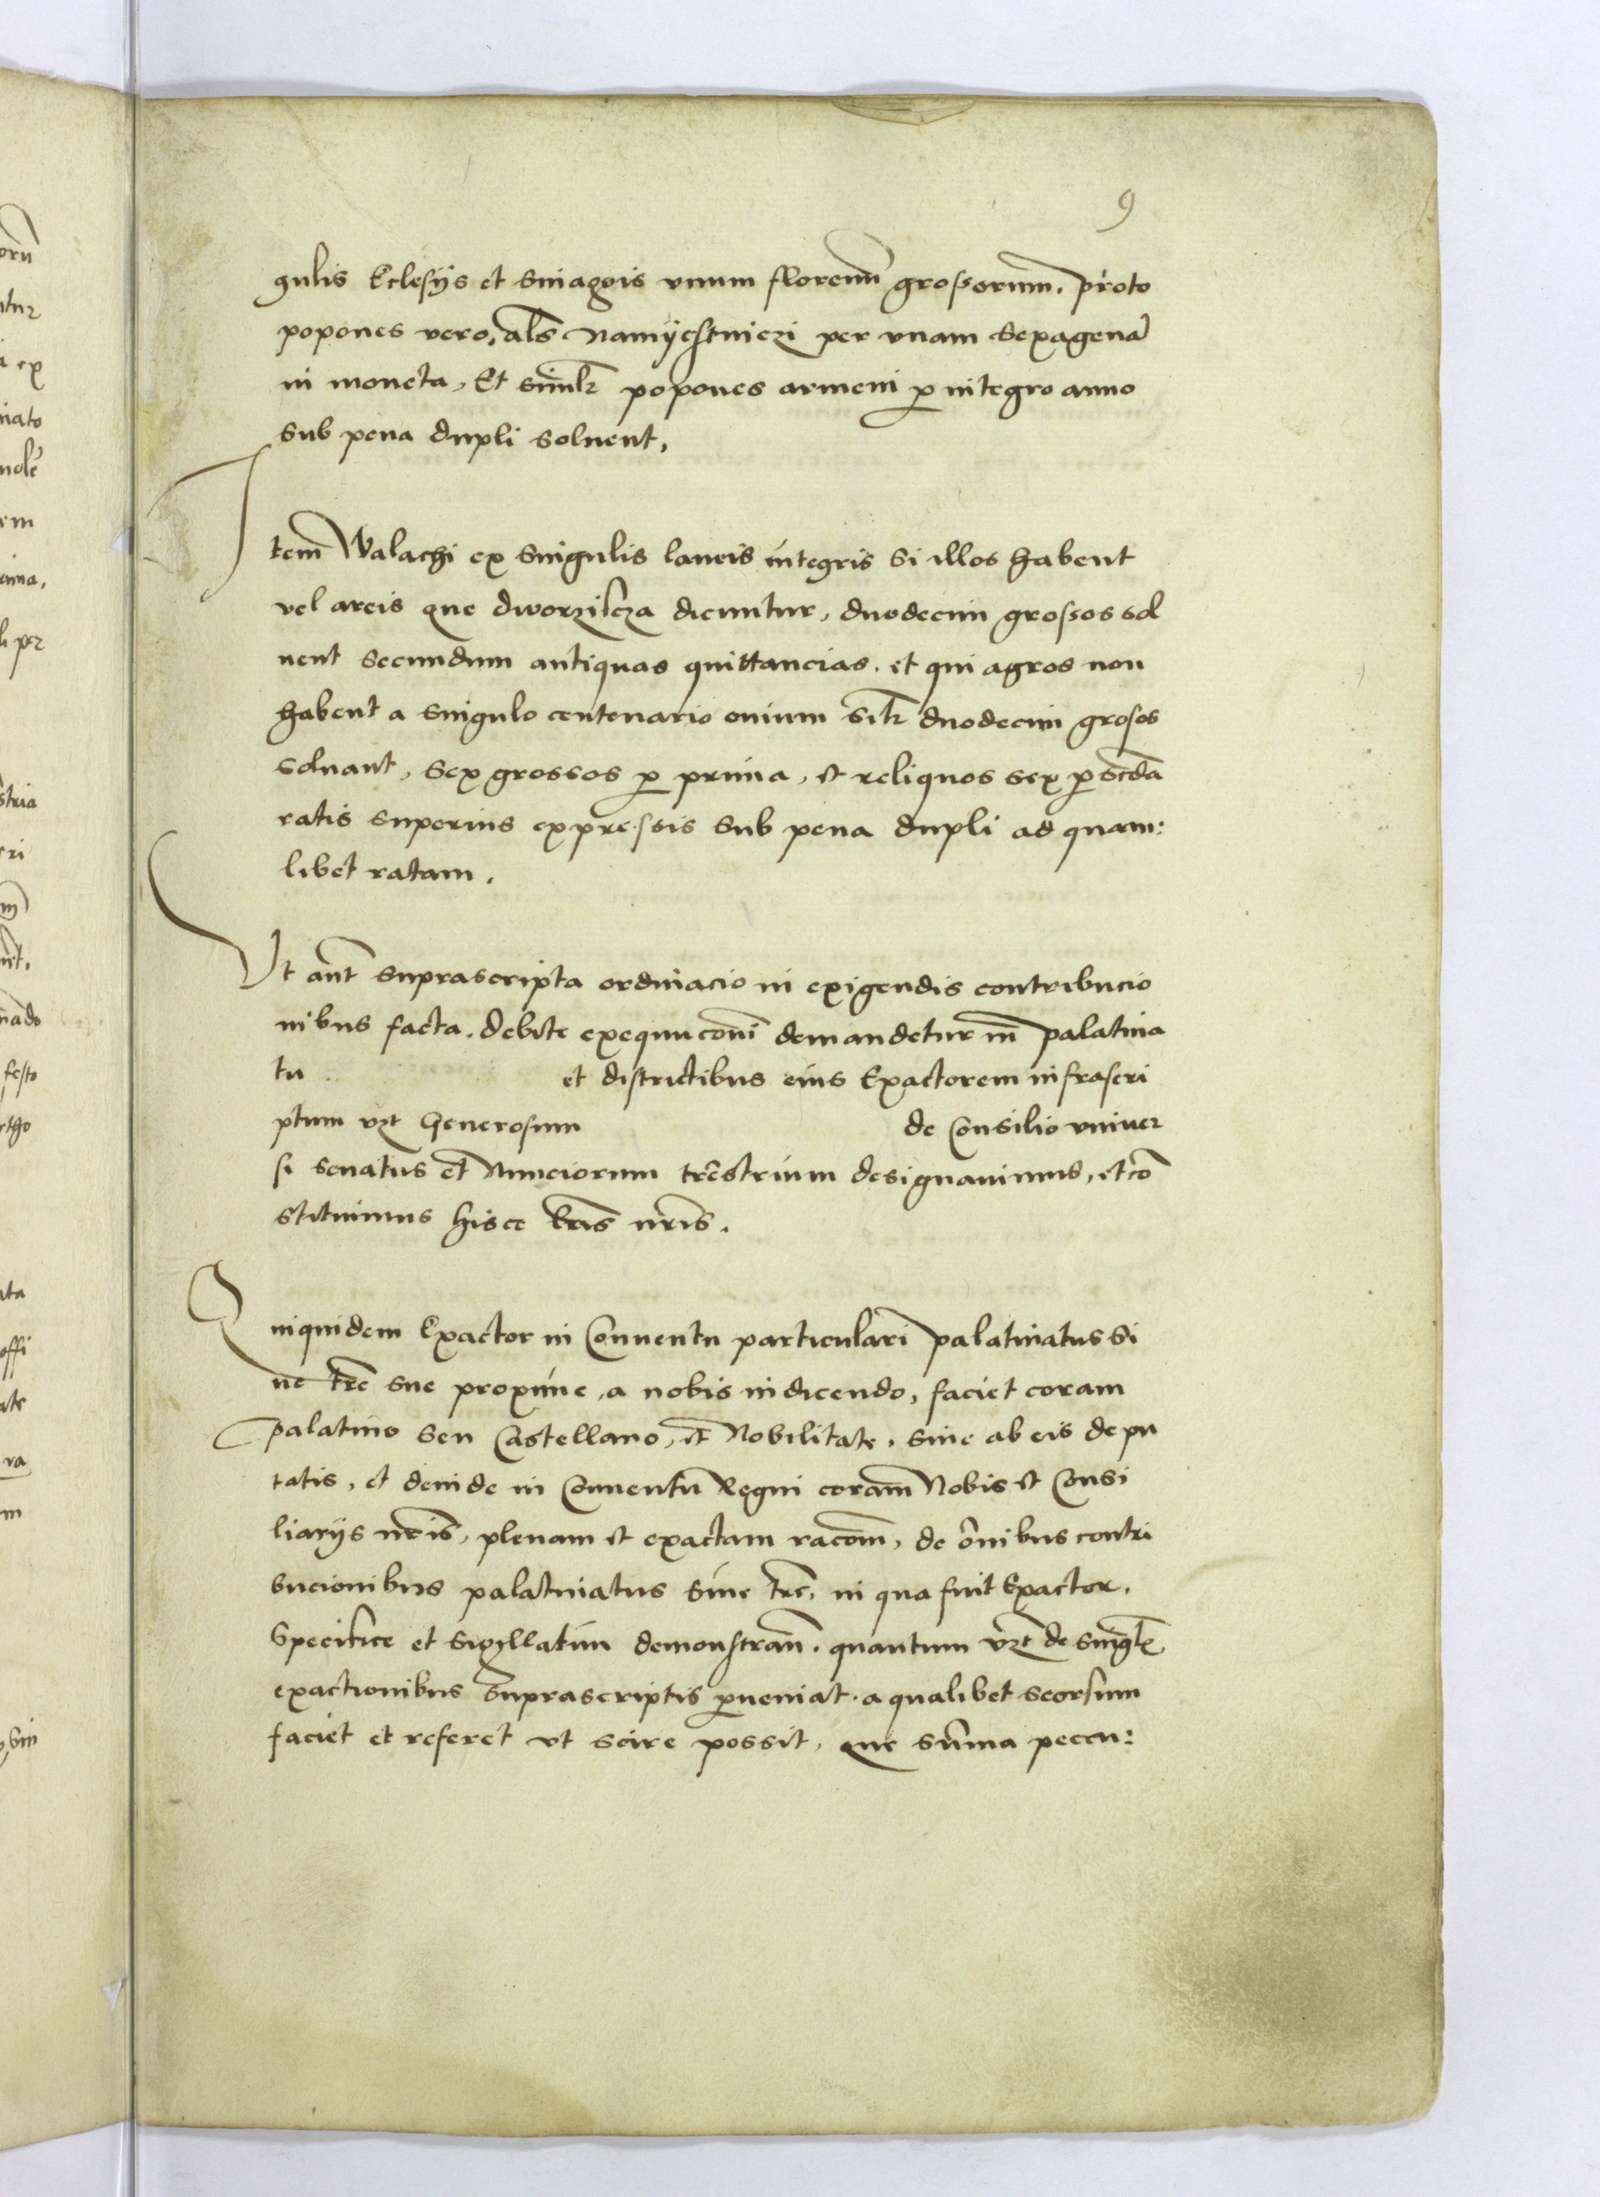 9
gulis Eclesijs et sinagois vnum florenũ grossorum. proto
popones vero, als Namyestniczi per vnam sexagenã
in moneta, Et simlr popones armeni p integro anno
sub pena dupli soluent,
Item Walachi ex singulis laneis integris si illos habent
vel areis que dworzisċza dicuntur, duodecim grossos sol
uent secundum antiquas quittancias. et qui agros non
habent a singulo centenario ouium silr duodecim grosos
soluant, sex grossos p prima, et reliquos sex p scdã
ratis superius expressis sub pena dupli ad quam:
libet ratam.
Ut aut suprascripta ordinacio in exigendis contribucio
nibus facta. debite exequuconi demandetur in palatina
tu et districtibus eius Exactorem infrascri
ptum vzt Generosum de Consilio vniuer
si senatus et Nunciorum trestrium designauimus, et cõ
stituimus hisce lras nris.
Quiquidem Exactor in Conuentu particulari palatinatus si
ue tre sue proxime, a nobis indicendo, faciet coram
palatino seu Castellano, et Nobilitate. siue ab eis depu
tatis, et deinde in Conuentu Regni coram Nobis et Consi
liarijs nris, plenam et exactam racom, de oñibus contri
bucionibus palatinatus siue tre, in qua fuit Exactor.
Specifice et sigillatim demonstran. quantum vzt de singlis
exactionibus suprascriptis pueniat. a qualibet seorsum
faciet et referet vt scire possit, que suma pecu: